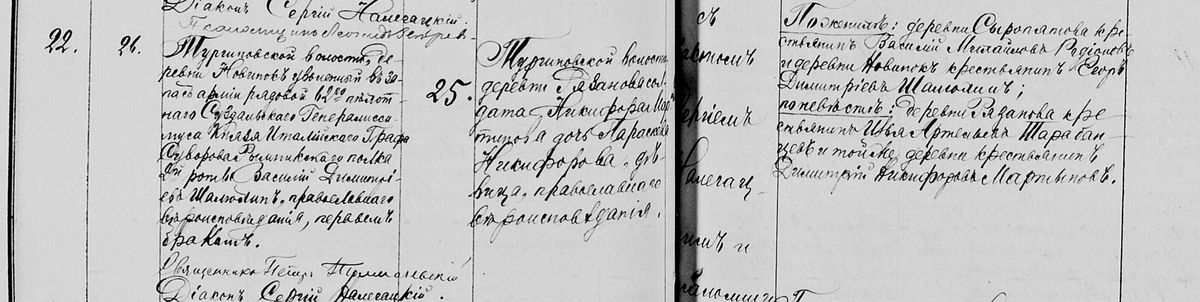 Діаконъ Сергій Налегацкій.
22.
26.
Тургиновской волости, де-
ревни Новинокъ уволенный въ за-
пасъ арміи рядовой 62го пѣхот-
наго Суздальскаго Генералисси-
муса Князя Италійскаго Графа
Суворова Рымникскаго полка
роты Василій Димитрі-
евъ Шамолинъ, православнаго
вѣроисповѣданія, первымъ
бракомъ.
Священникъ Петръ
Діаконъ Сергій Налегацкій.
25.
Тургиновской волости
деревни Рязанова сол-
дата Никифора Мар-
тинова дочь Параскева
Никифорова, дѣ-
вица, православнаго
вѣроисповѣданія.
съ
ргіемъ
алегац-
имъ и
По женихѣ: деревни Сыропятова кре-
стьянинъ Василій Михайловъ Родіоновъ
и деревни Новинокъ крестьянинъ Егоръ
Димитріевъ Шамолинъ;
по невѣстѣ: деревни Рязанова кре-
стьянинъ Илья Артемьевъ Тарабан-
цевъ и той же деревни крестьянинъ
Димитрій Никифоровъ Мартыновъ.